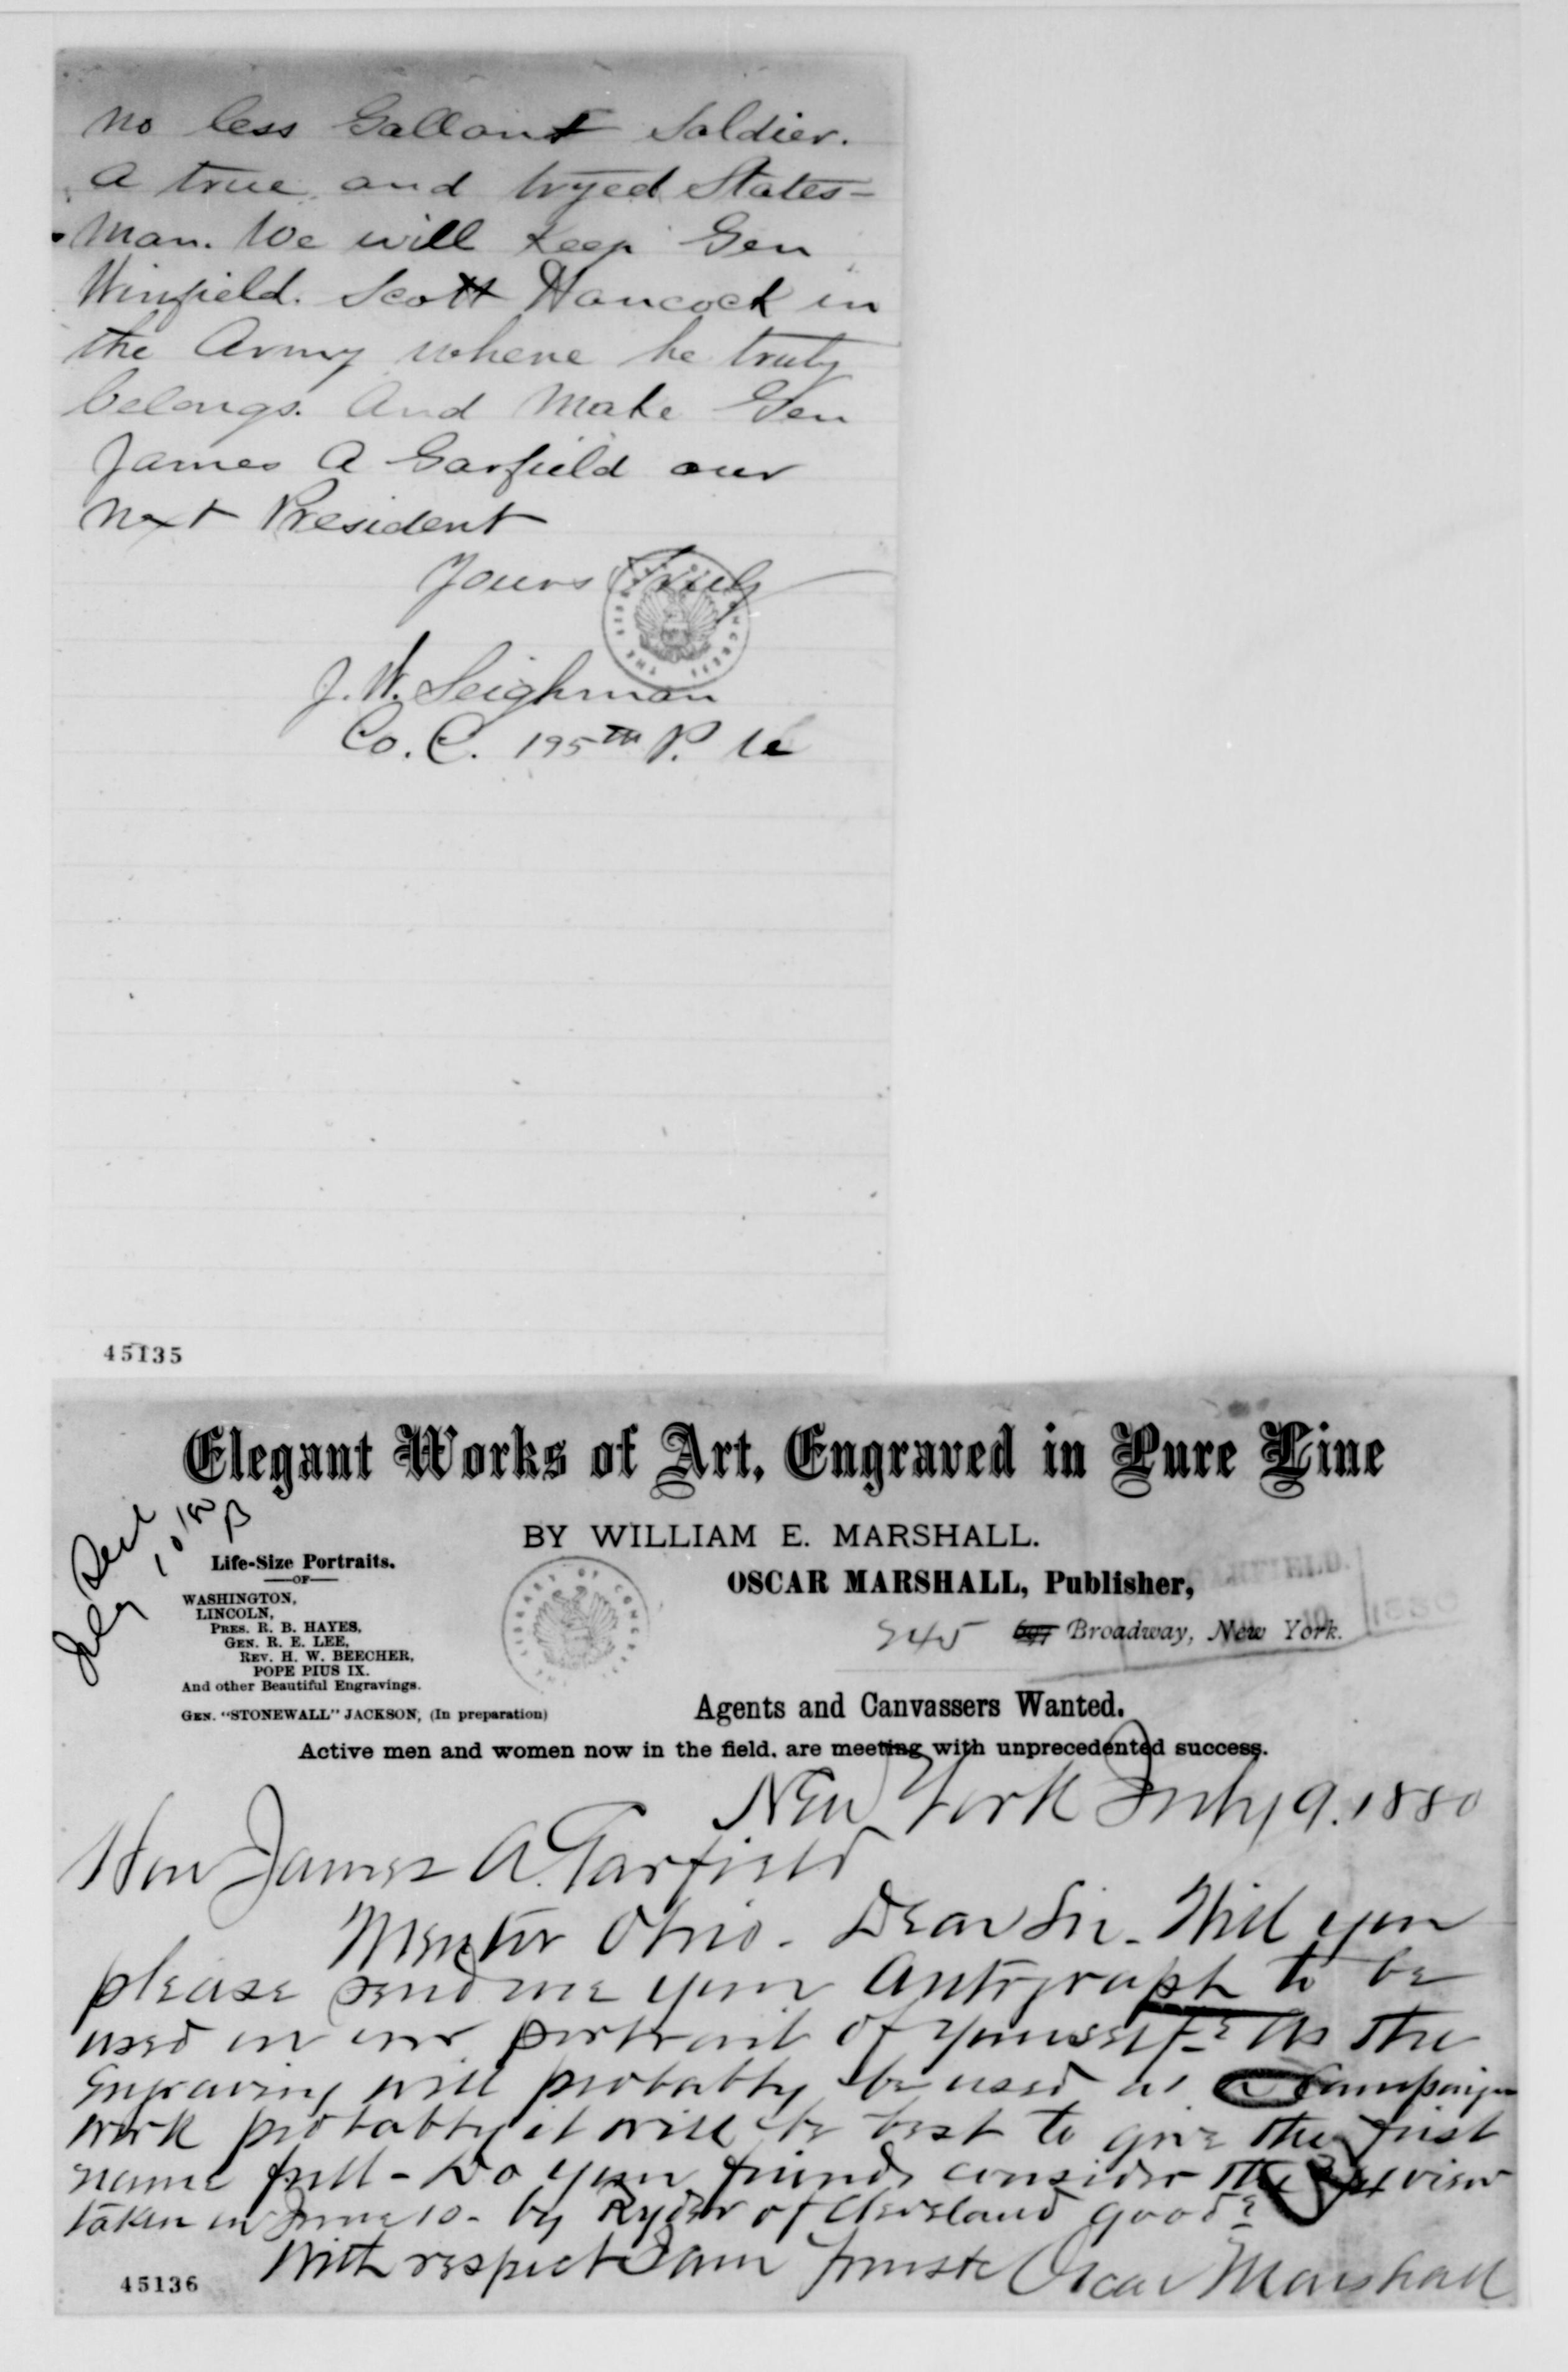 no less Gallant Soldier.
A true and tryed States-
man. We will Keep Gen
Winfield. Scott Hancock in
the Army where he truly
belongs. And Make Gen
James A Garfield our
next President
Yours Truly
J. W. Seighman
Co. C. 195th P.
45135
Elegant Works of Art, Engraved in Pure Line
BY WILLIAM E. MARSHALL.
OSCAR MARSHALL, Publisher,
245 697 Broadway, New York.
GARFIELD.
1880
July 10/80
Life-Size Portraits.
OF
WASHINGTON,
LINCOLN,
PRES. R. B. HAYES,
GEN. R. E. LEE,
REV. H. W. BEECHER,
POPE PIUS IX.
And other Beautiful Engravings.
GEN. "STONEWALL" JACKSON, (In preparation)
LIBRARY OF CONGRESS
Agents and Canvassers Wanted.
Active men and women now in the field, are meeting with unprecedented success.
New York July 9. 1880
Hon James A. Garfield
Mentor Ohio - Dear Sir - Will you
please send me your Autograph to be
used in our portrait of yourself - As the
engraving will probably be used as a Campaign
work probably it will be best to give the first
name full - Do your friends consider the view
taken in June 10 - by Ryder of Cleveland good?
With respect I am Oscar Marshall
45136